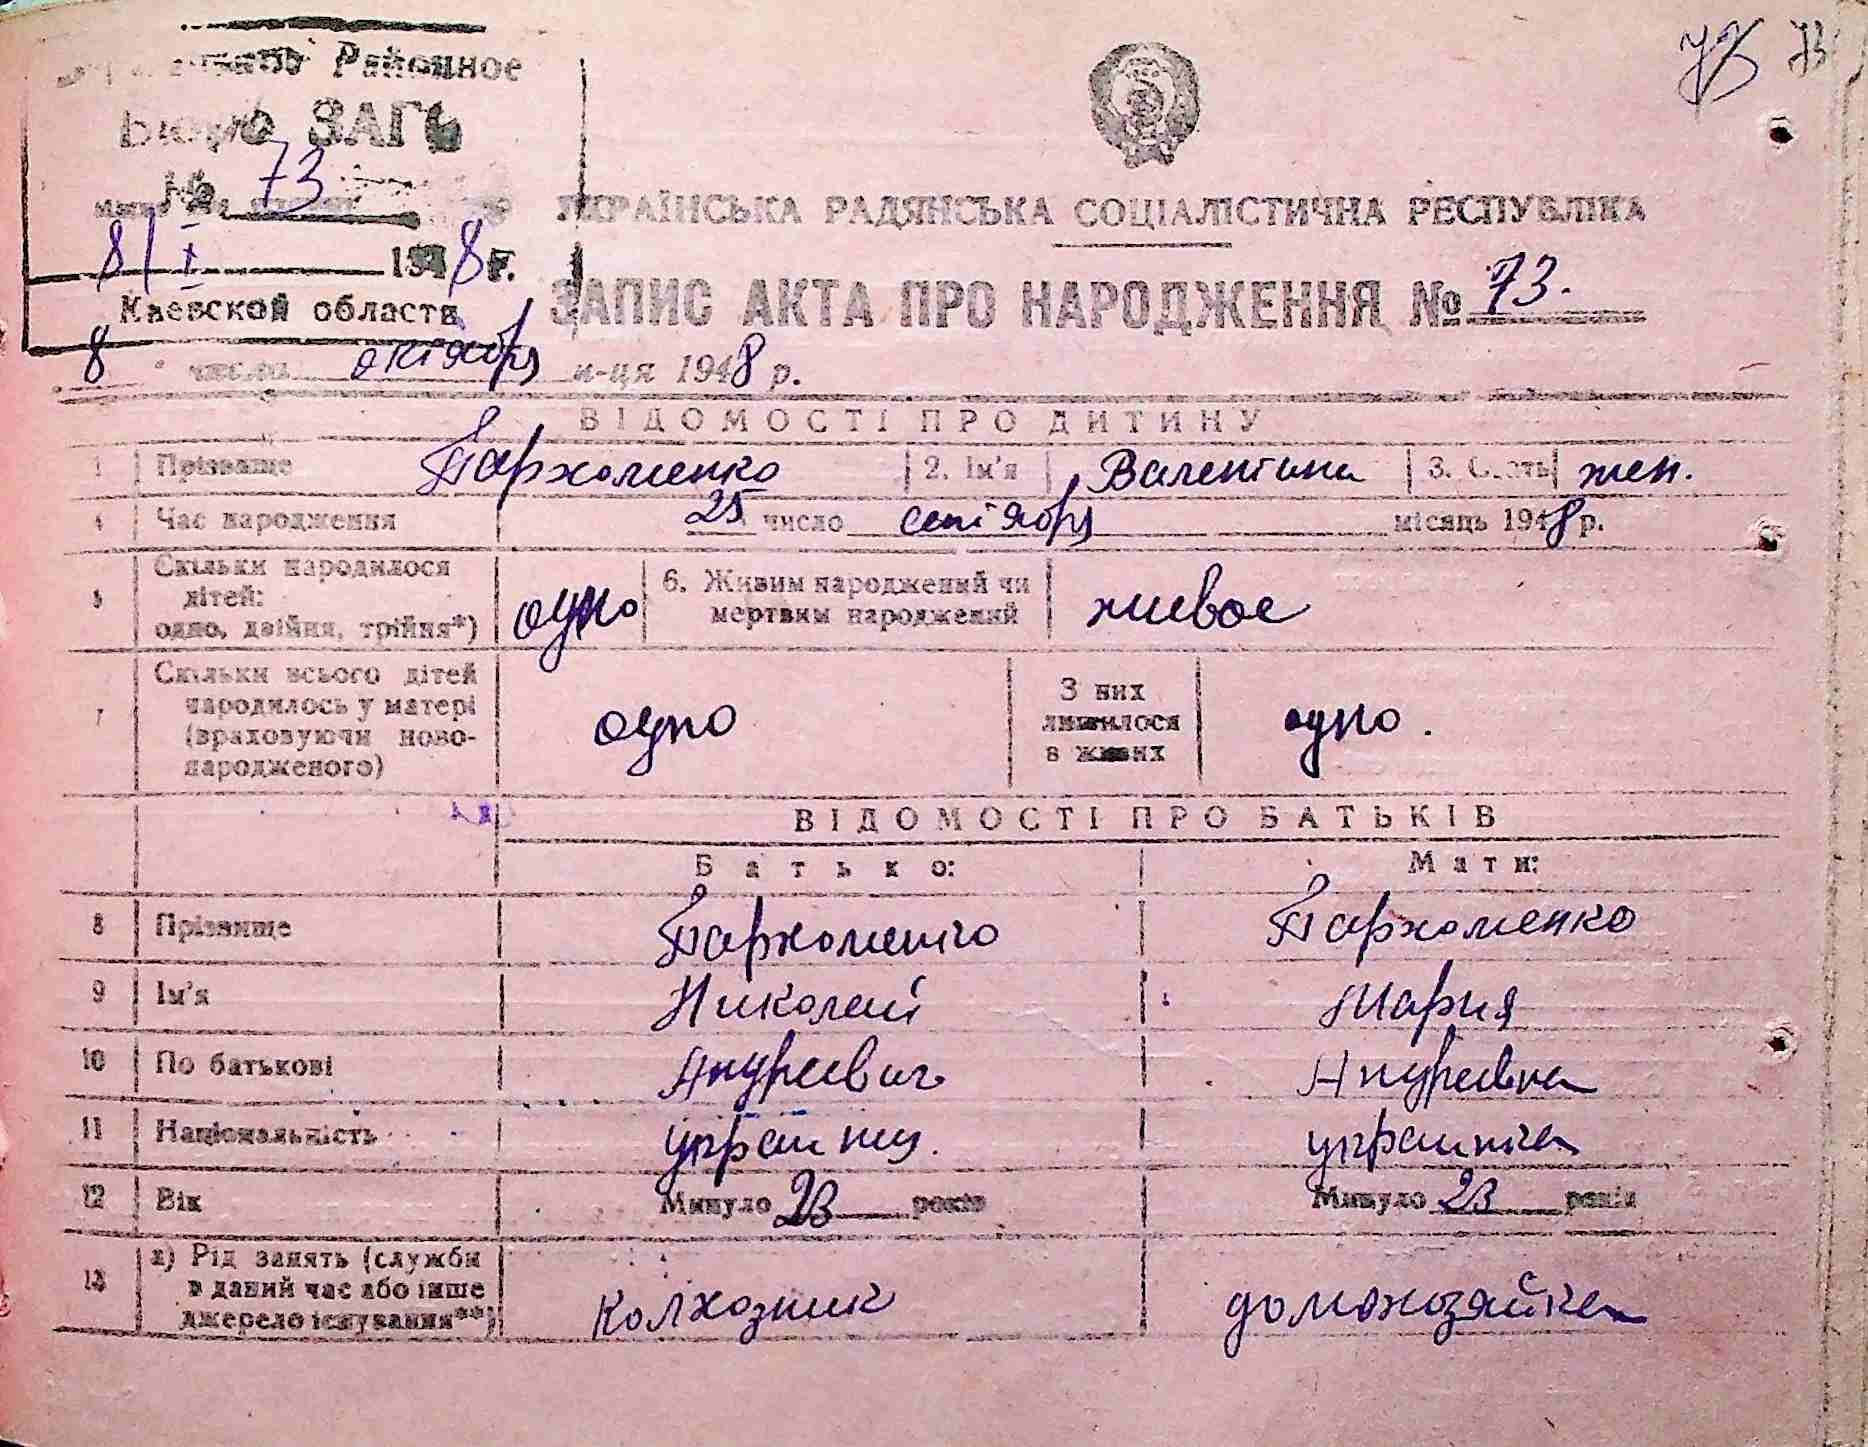 73 73
Районное
Бюро ЗАГС
№ 73
8/X 1948 г.
Киевской области
УКРАЇНСЬКА РАДЯНСЬКА СОЦІАЛІСТИЧНА РЕСПУБЛІКА
ЗАПИС АКТА ПРО НАРОДЖЕННЯ № 73.
8 числа октября м-ця 1948 р.
ВІДОМОСТІ ПРО ДИТИНУ
1 Прізвище Пархоменко 2. Ім'я Валентина 3. Стать жен.
4 Час народження 25 число сентября місяць 1948 р.
5 Скільки народилося
дітей:
одно, двійня, трійня*) одно
6. Живим народжений чи
мертвим народжений живое
7 Скільки всього дітей
народилось у матері
(враховуючи ново-
народженого) одно
З них
лишилося
в живих одно.
ВІДОМОСТІ ПРО БАТЬКІВ
Батько: Мати:
8 Прізвище Пархоменко Пархоменко
9 Ім'я Николай Мария
10 По батькові Андреевич Андреевна
11 Національність украинец. украинка
12 Вік Минуло 23 років Минуло 23 років
13 а) Рід занять (служби
в даний час або інше
джерело існування**) колхозник домохозяйка